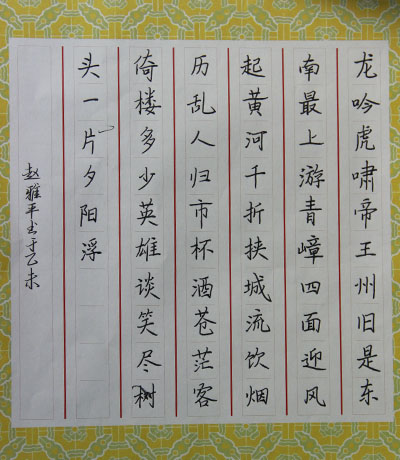 龙吟虎啸帝王州旧是东
南最上游青嶂四面迎风
起黄河千折挟城流饮烟
历乱人归市杯酒苍茫客
倚楼多少英雄谈笑尽树
头一片夕阳浮
赵雅平书于乙未